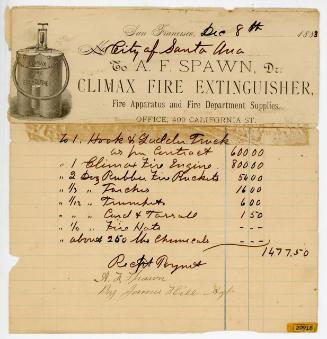 San Francisco, Dec 8th 188
City of Santa Ana
To A. F. SPAWN, Dr.
CLIMAX
FIRE
CLIMAX FIRE EXTINGUISHER,
Fire Apparatus and Fire Department Supplies.
OFFICE, 409 CALIFORNIA ST.
To 1 Hook & Ladder Truck
as per Contract 600.00
" 1 Climax Fire Engine 800.00
" 2 Doz Rubber Fire Buckets 54.00
" " Torches 16.00
" 1/12 " Trumpets 6.00
" " Cord & Tassell 1.50
" " Fire Hats - - -
" about 250 lbs Chemicals - - -
1477.50
Recpt Paymt
A. F. Spawn
By James Hill Agt